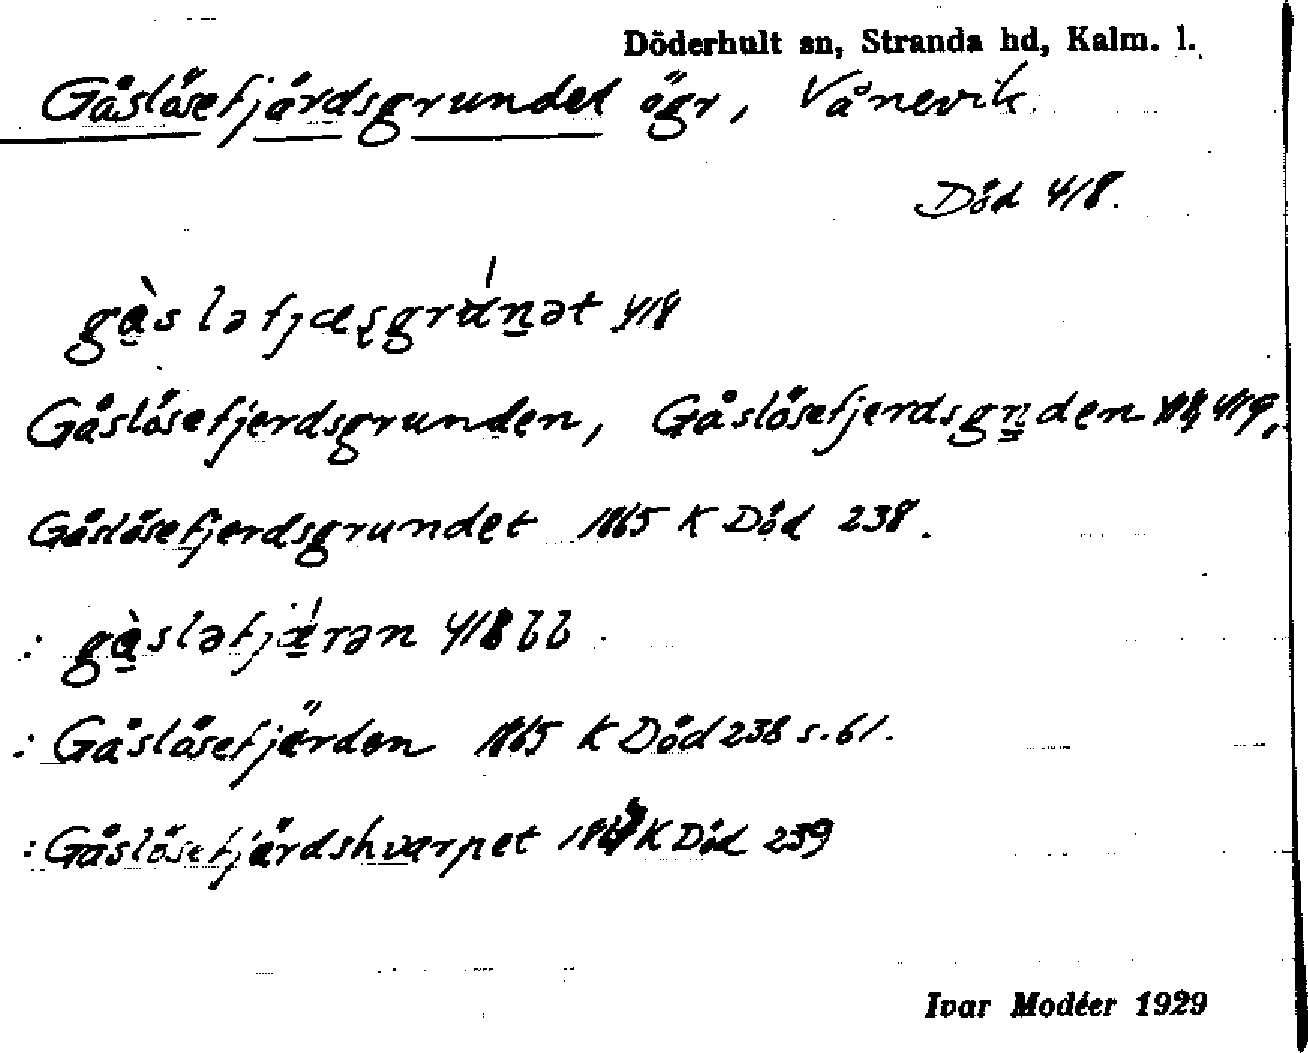 Döderhult sn, Stranda hd, Kalm. l.
Gåslösefjärdsgrundet ögr, Vånevik.
Död 418.
gàsləfjæşgrúnət 418
Gåslösefjerdsgrunden, Gåslösefjerdsgnden 419,
Gåslösefjerdsgrundet 1865 K Död 238.
: gàsləfjǽrən 418 bb
: Gåslösefjärden 1865 K Död 238 s. 61.
: Gåslösefjärdshvarpet K Död 239
Ivar Modéer 1929